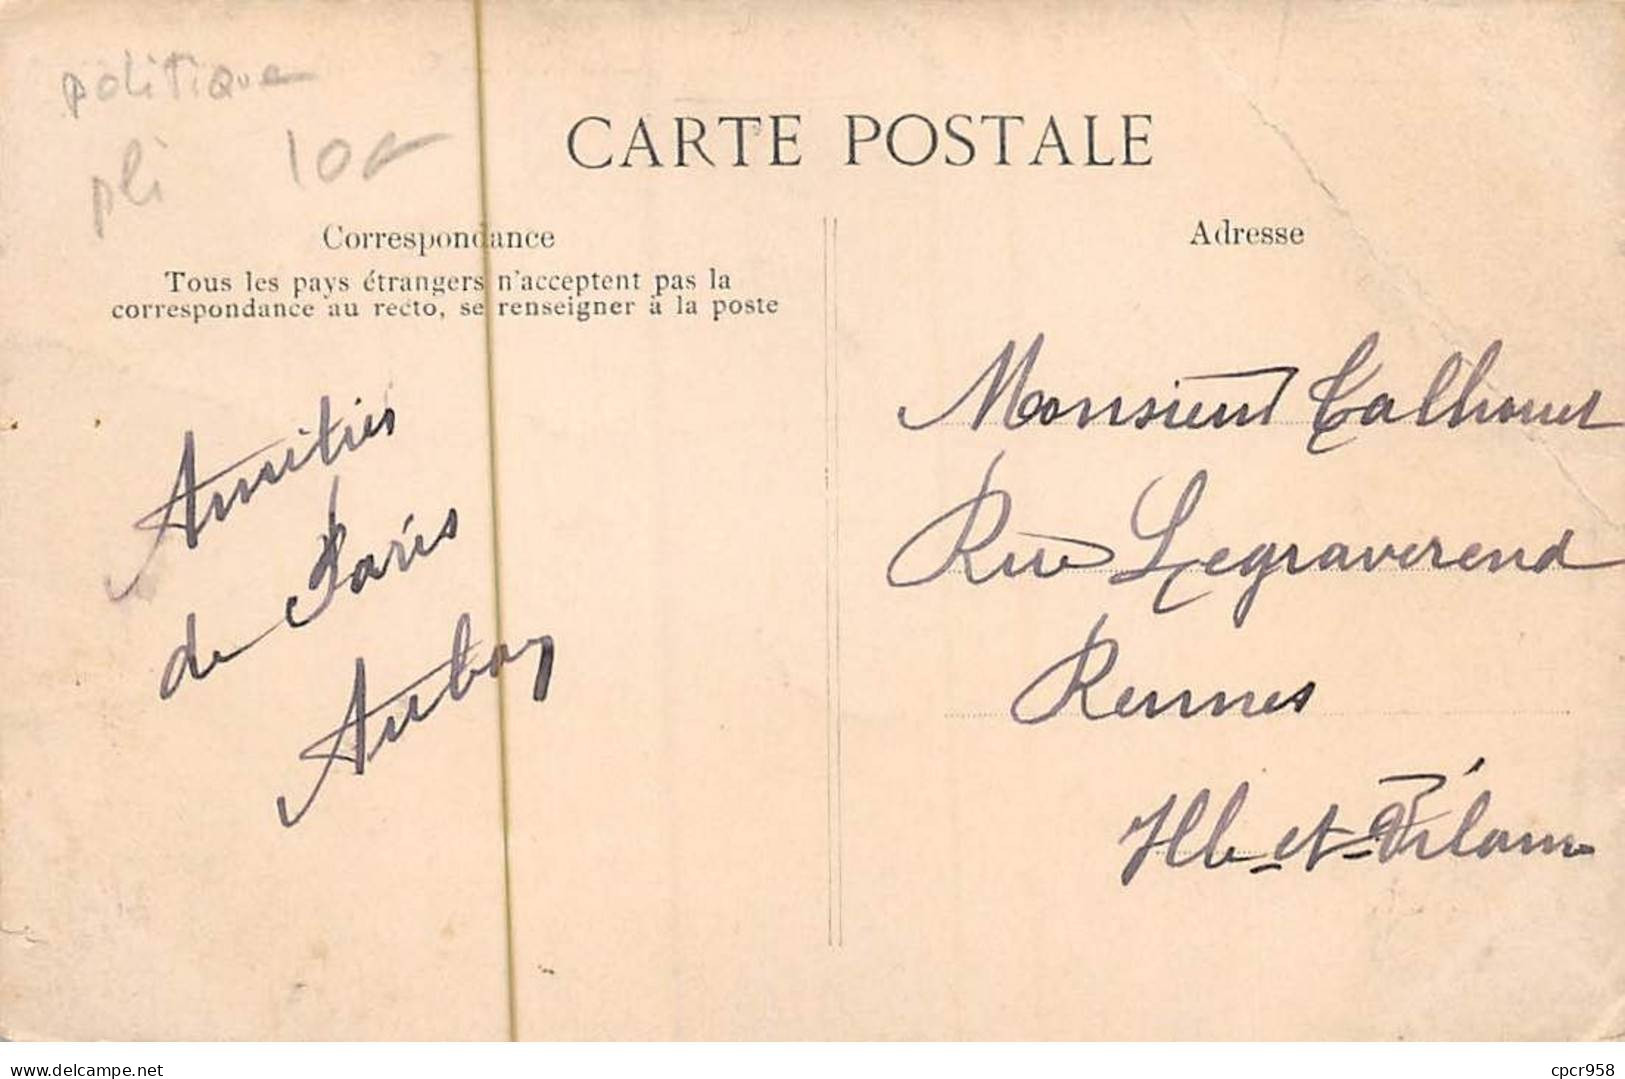 politique
pli 10€
CARTE POSTALE
Correspondance
Tous les pays étrangers n'acceptent pas la
correspondance au recto, se renseigner à la poste
Amitiés
de Paris
Aubay
Adresse
Monsieur Calhouet
Rue Legraverend
Rennes
Ille-et-Vilaine
delcampe.net
cpcr958